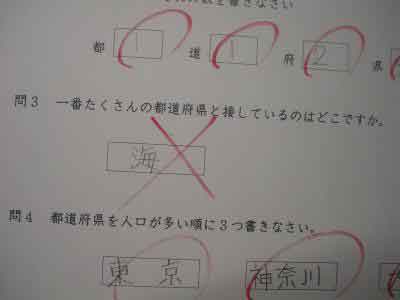 数を書きなさい
都 1 道 1 府 2 県
問3 一番たくさんの都道府県と接しているのはどこですか。
海
問4 都道府県を人口が多い順に3つ書きなさい。
東京 神奈川